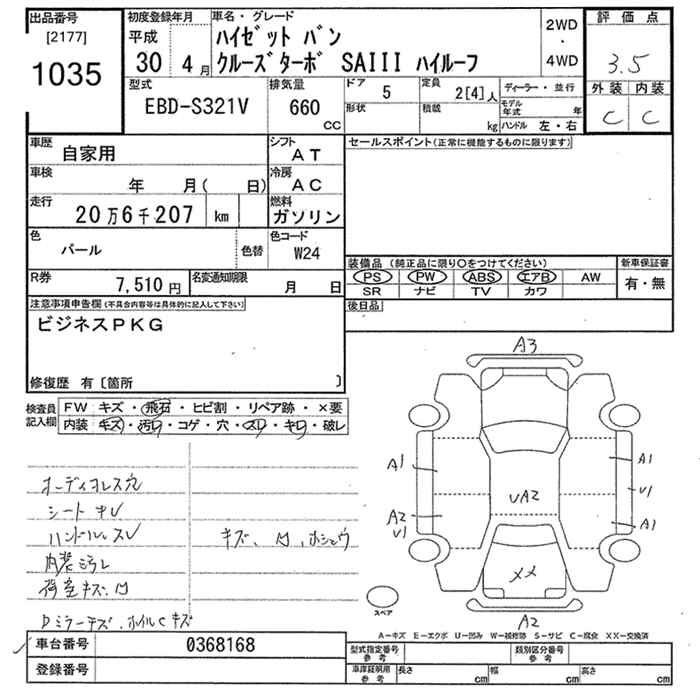 出品番号
[2177]
1035
初度登録年月
平成
30 4月
車名・グレード
ハイゼット バン
クルーズターボ SAIII ハイルーフ
2WD
・
4WD
評価点
3.5
外装 内装
C C
型式
EBD-S321V
排気量
660
CC
ドア
5
形状
定員
2[4]人
積載
kg
ディーラー・並行
モデル年式 年
ハンドル 左・右
車歴
自家用
シフト
AT
車検
年 月( 日)
冷房
AC
走行
20万6千207 km
燃料
ガソリン
色
パール
色替
色コード
W24
R券
7,510円
名変通知期限
月 日
セールスポイント(正常に機能するものに限ります)
装備品 (純正品に限り○をつけてください)
PS PW ABS エアB AW
SR ナビ TV カワ
新車保証書
有・無
後日品
注意事項申告欄(不具合内容等は具体的に記入して下さい)
ビジネスPKG
修復歴 有〔箇所 〕
検査員記入欄
FW キズ・飛石・ヒビ割・リペア跡・×要
内装 キズ・汚れ・コゲ・穴・スレ・キレ・破レ
オーディオレス穴
シート キレ
ハンドルスレ
キズ、凹、ホシュウ
内装汚れ
荷室キズ、凹
Dミラーキズ、ホイルCキズ
A3
A1
A1
UA2
U1
A2
U1
A1
メメ
A2
スペア
A-キズ E-エクボ U-凹み W-補修跡 S-サビ C-腐食 XX-交換済
車台番号
0368168
登録番号
型式指定番号
参考
類別区分番号
参考
車庫証明用
参考
長さ cm
幅 cm
高さ cm